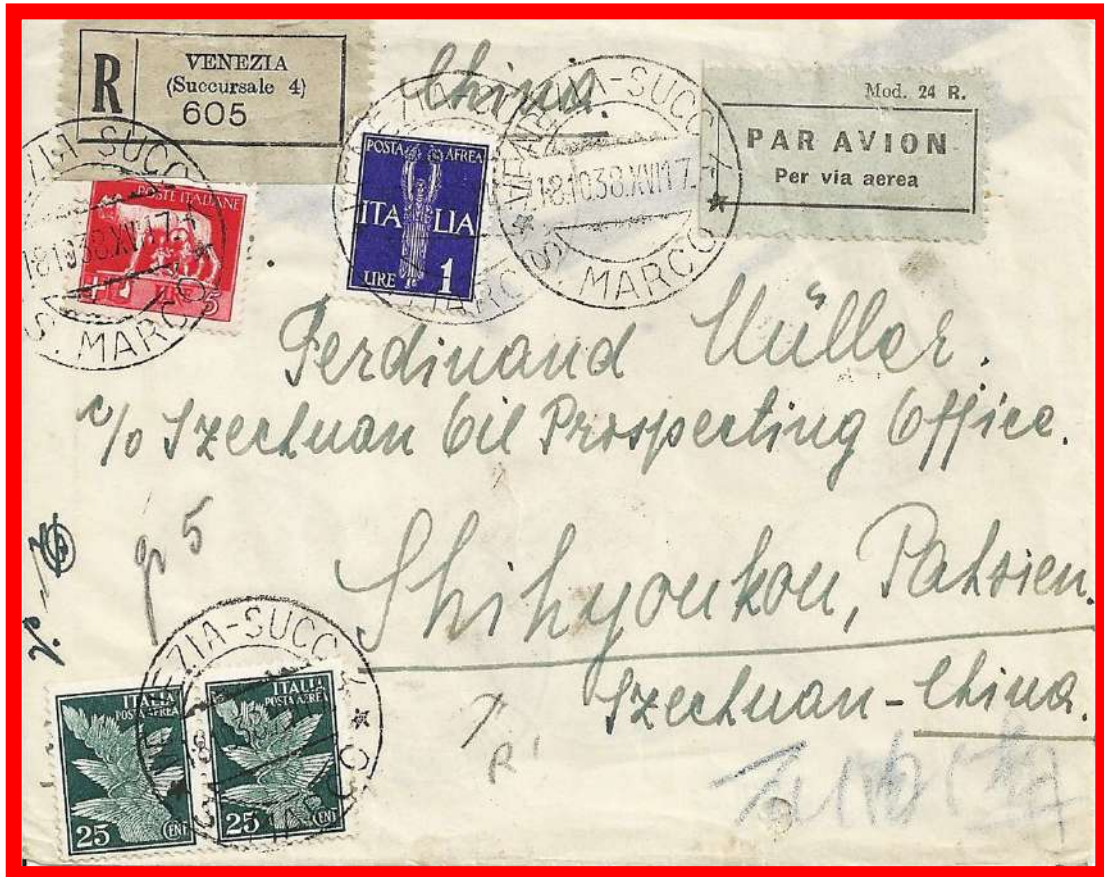 R
VENEZIA
(Succursale 4)
605
China
Mod. 24 R.
PAR AVION
Per via aerea
VENEZIA-SUCC. 4
18.10.38.XVI 17
(S. MARCO)
POSTE ITALIANE
5
POSTA AEREA
ITALIA
LIRE 1
Ferdinand Müller.
c/o Szechuan Oil Prospecting Office.
gr 5
Shihyoukou, Pahsien.
Szechuan-China.
ITALIA
POSTA AEREA
25 CENT
ITALIA
POSTA AEREA
25 CENT
R